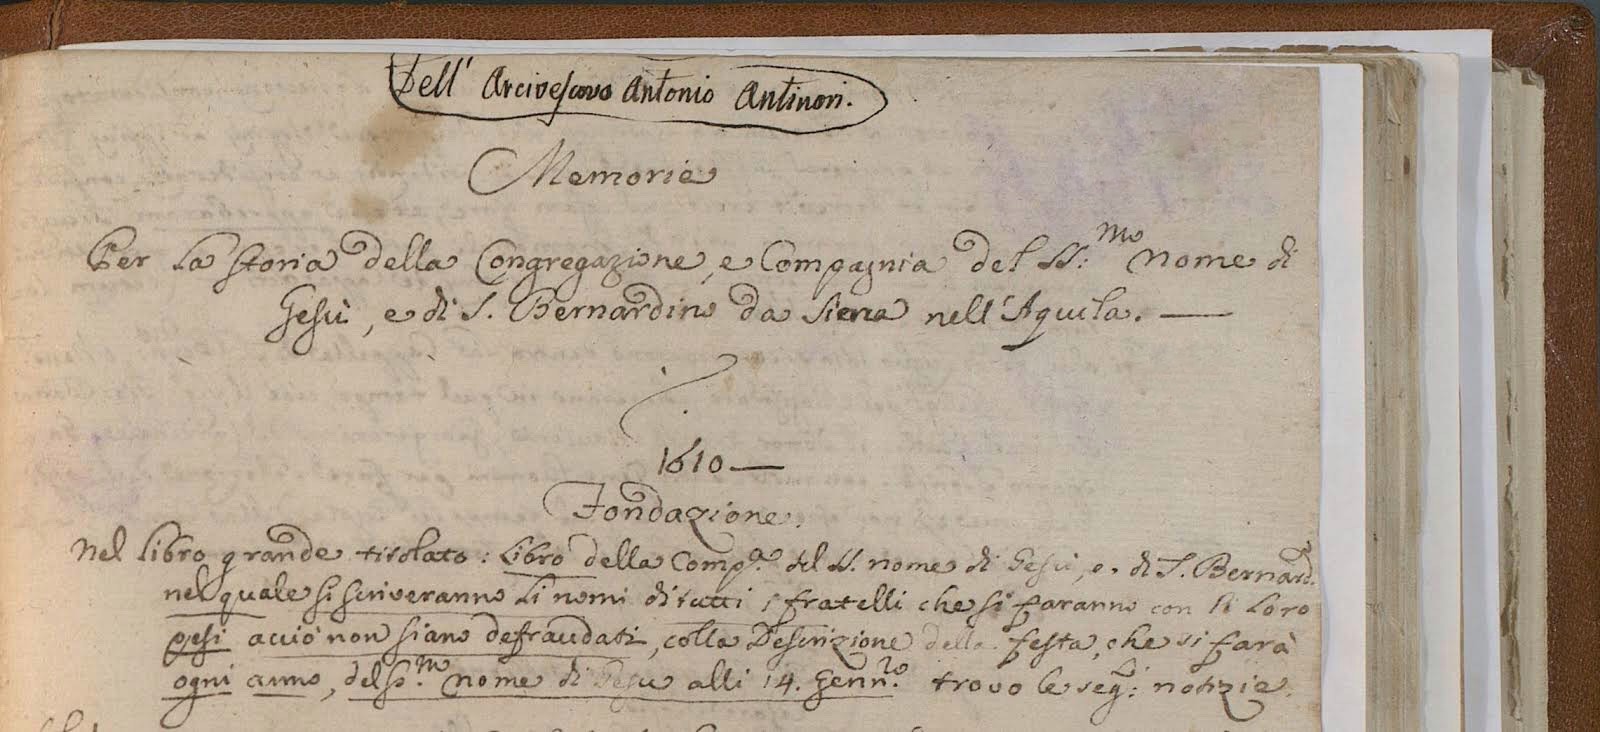 Dell' Arcivescovo Antonio Antinori.
Memorie
Per la storia della Congregazione, e Compagnia del SS:mo nome di
Gesù, e di S. Bernardino da Siena nell'Aquila.
1610
Fondazione.
Nel libro grande titolato: Libro della Comp.a del SS. nome di Gesù, e di S. Bernard.
nel quale si scriveranno li nomi di tutti i fratelli che si faranno con li loro
pesi acciò non siano defraudati, colla Descrizione della festa, che si farà
ogni anno, del SS.mo nome di Gesù alli 14. Genn.ro trovo le seg:ti notizie.